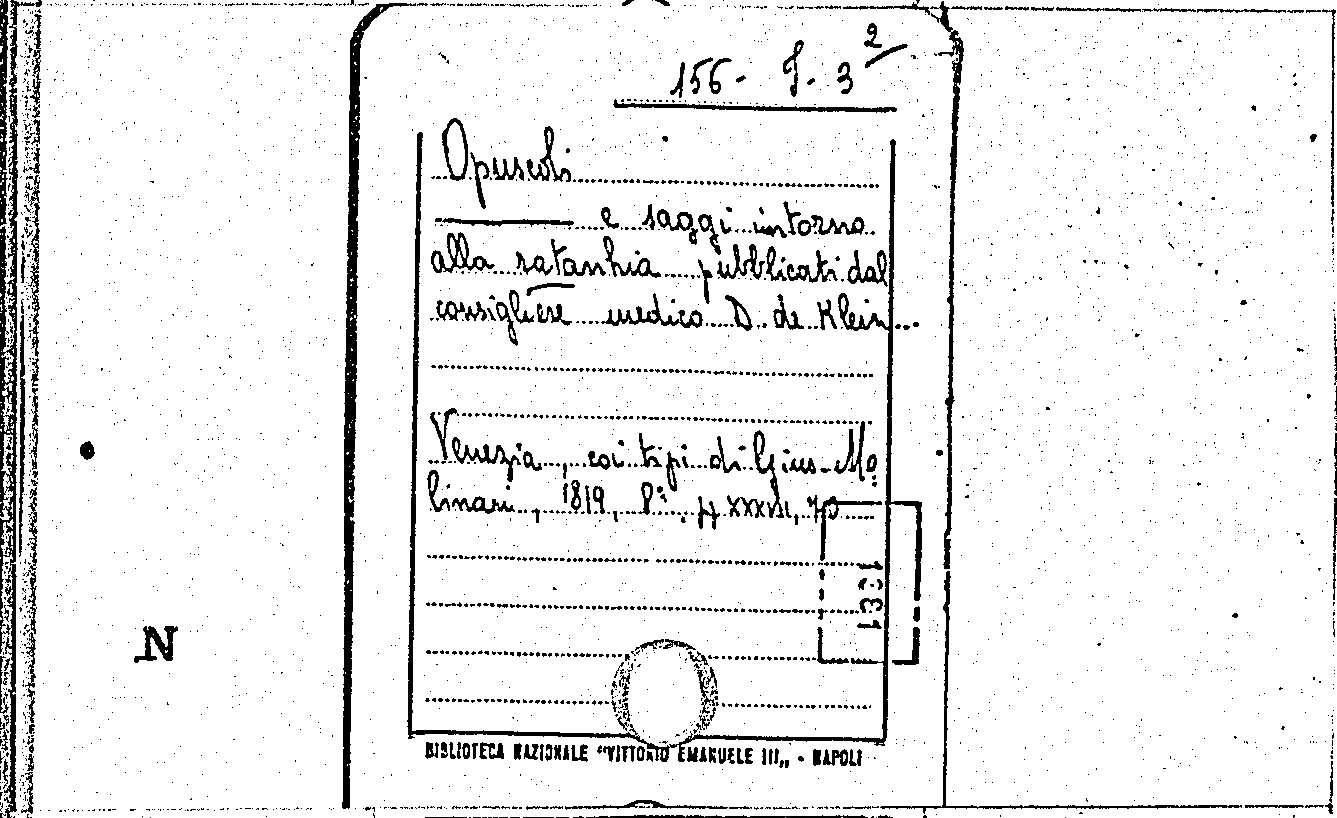 156- J- 3 2
Opuscoli
e saggi intorno
alla ratanhia pubblicati dal
consigliere medico D. de Klein...
Venezia, coi tipi di Gius. Mo-
linari, 1819, 8°, pp XXXVIII, 70
1931
N
BIBLIOTECA NAZIONALE "VITTORIO EMANUELE III„ - NAPOLI